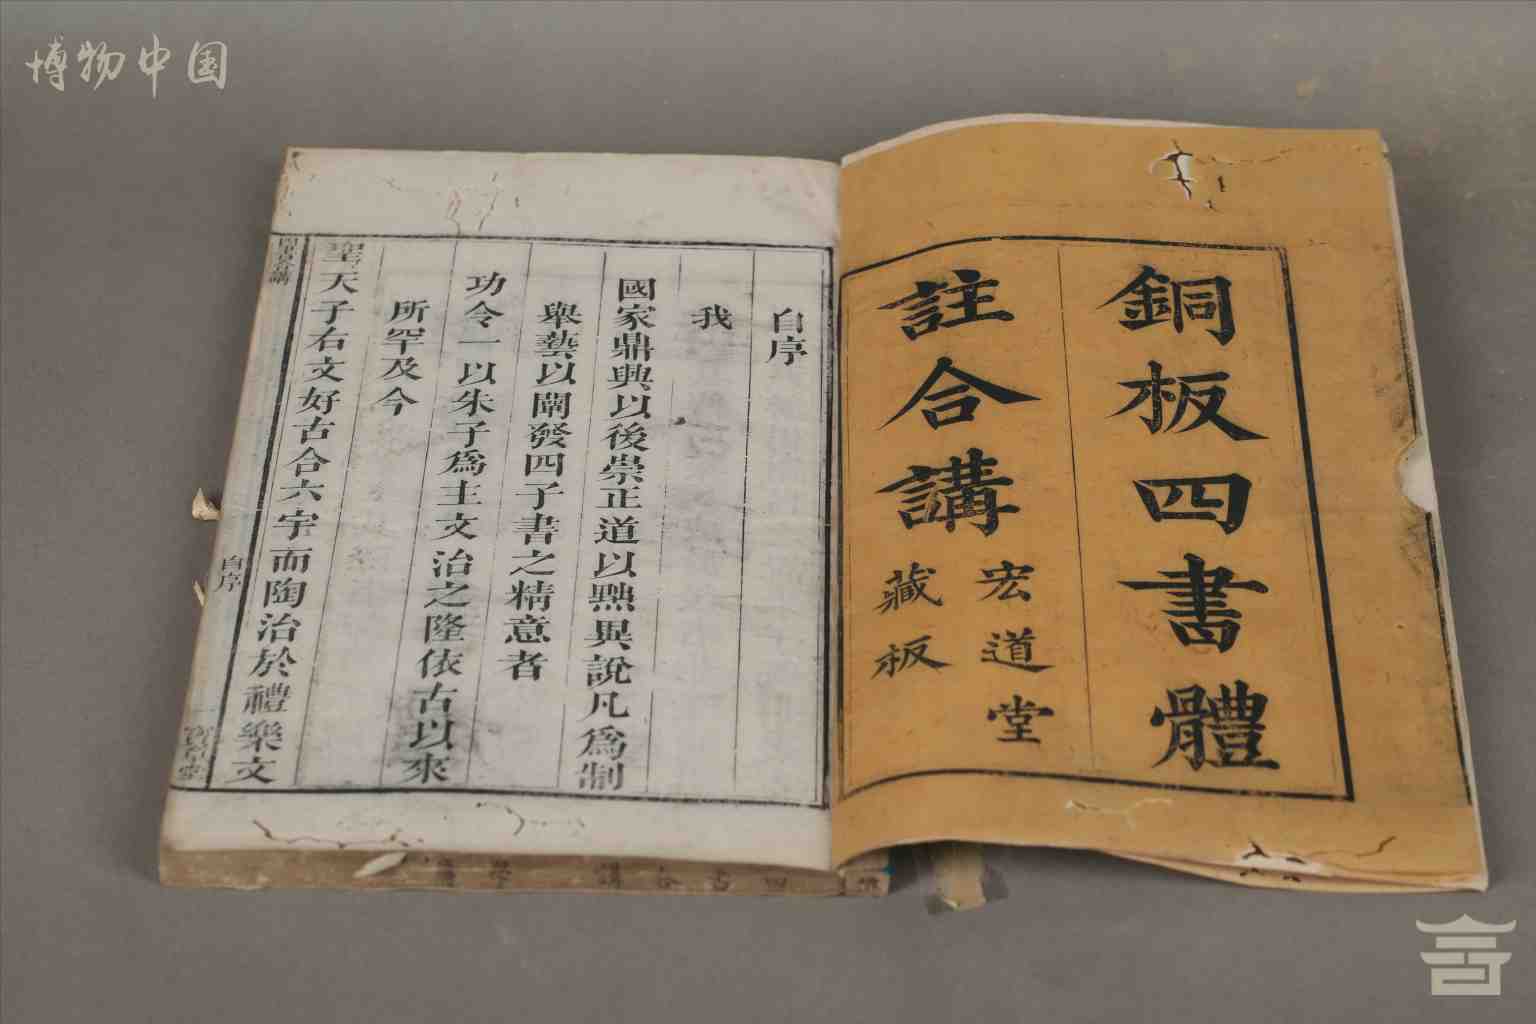 博物中国
銅板四書體
註合講
宏道堂
藏板
自序
我
國家鼎興以後崇正道以黜異說凡爲制
舉藝以闡發四子書之精意者
功令一以朱子爲主文治之隆依古以來
所罕及今
聖天子右文好古合六宇而陶治於禮樂文
自序